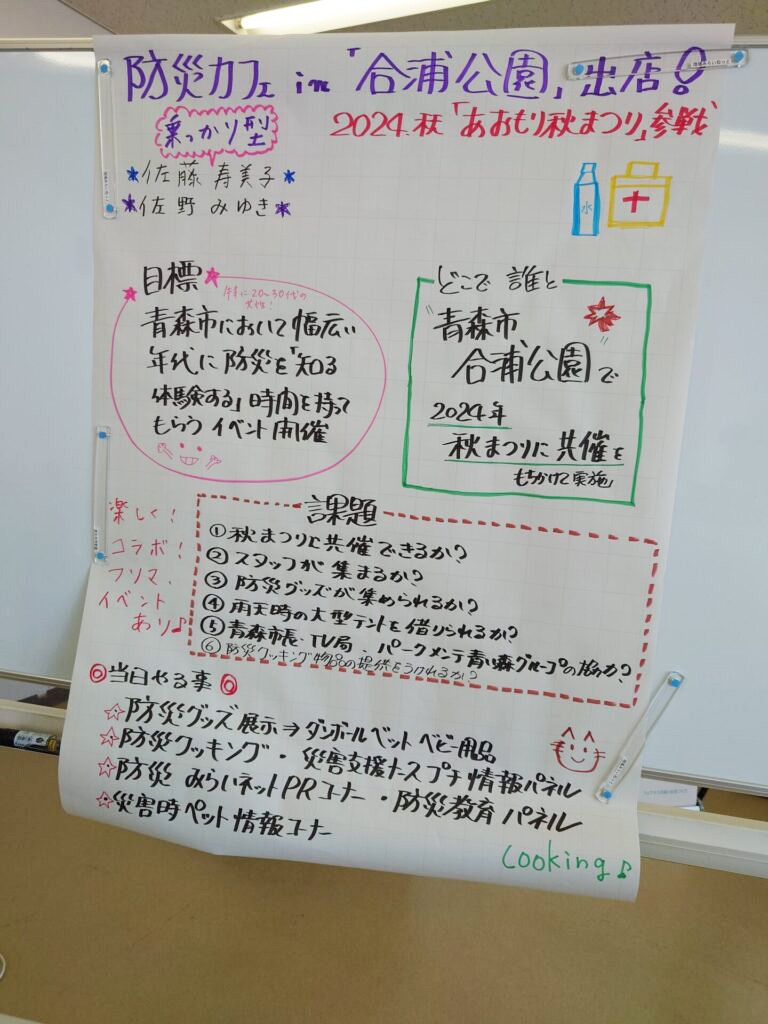 防災カフェ in 「合浦公園」 出店!
乗っかり型
2024.秋「あおもり秋まつり」参戦
佐藤 寿美子
佐野 みゆき
水
目標
特に20〜30代の
女性!
青森市において幅広い
年代に防災を「知る
体験する」時間を持って
もらう イベント開催
どこで 誰と
"青森市
合浦公園で
2024年
秋まつりに共催を
もちかけて実施」
楽しく!
コラボ!
フリマ、
イベント
あり♪
課題
①秋まつりと共催できるか?
②スタッフが集まるか?
③防災グッズが集められるか?
④雨天時の大型テントを借りられるか?
⑤青森市長・TV局、パークメンテ青い森グループの協力?
⑥防災クッキング物品の提供をうけれるか?
◎当日やる事◎
☆防災グッズ展示→ダンボールベット ベビー用品
☆防災クッキング・災害支援ナースプチ情報パネル
☆防災 みらいネットPRコーナー・防災教育パネル
☆災害時ペット情報コーナー
Cooking♪